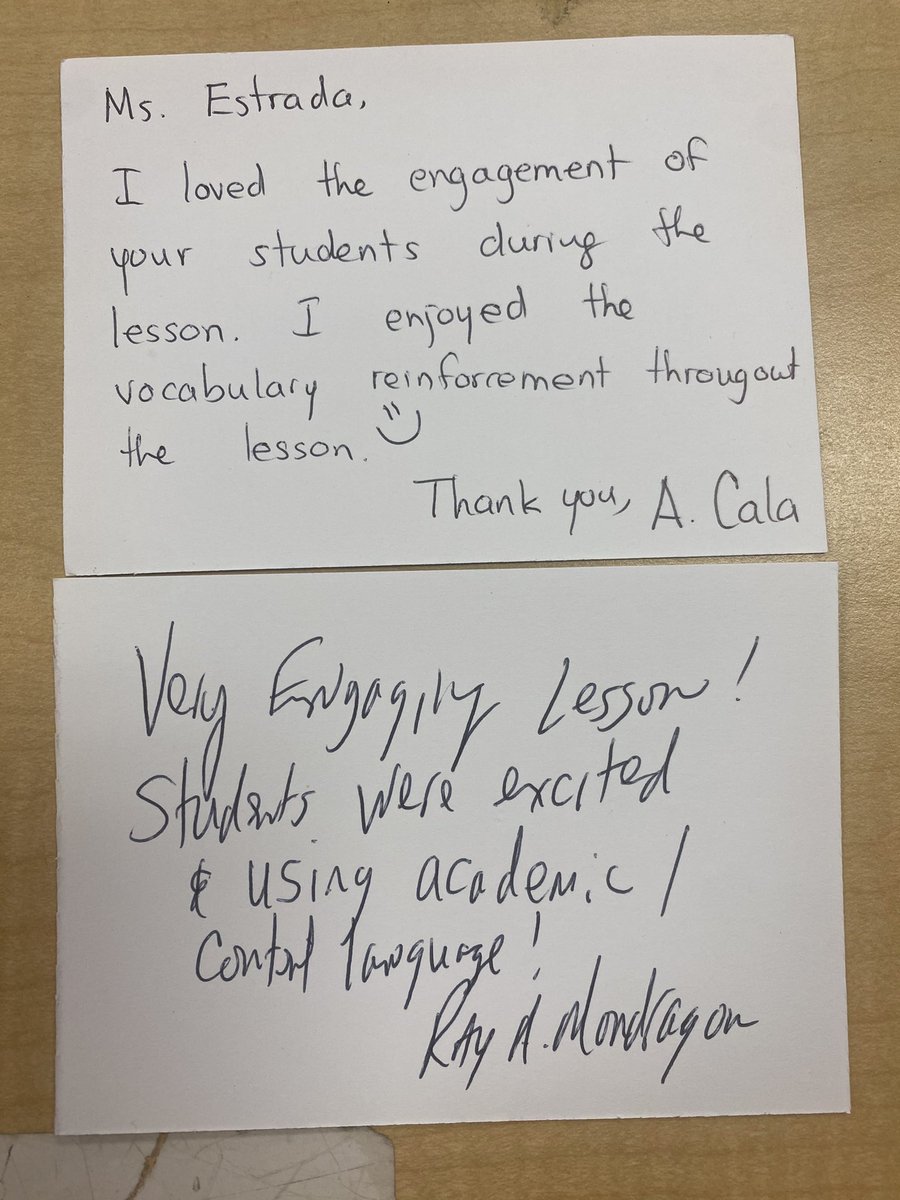 Ms. Estrada,
I loved the engagement of
your students during the
lesson. I enjoyed the
vocabulary reinforcement througout
the lesson.
Thank you, A. Cala
Very Engaging Lesson!
Students were excited
& using academic /
Content language!
Ray A. Mondragon